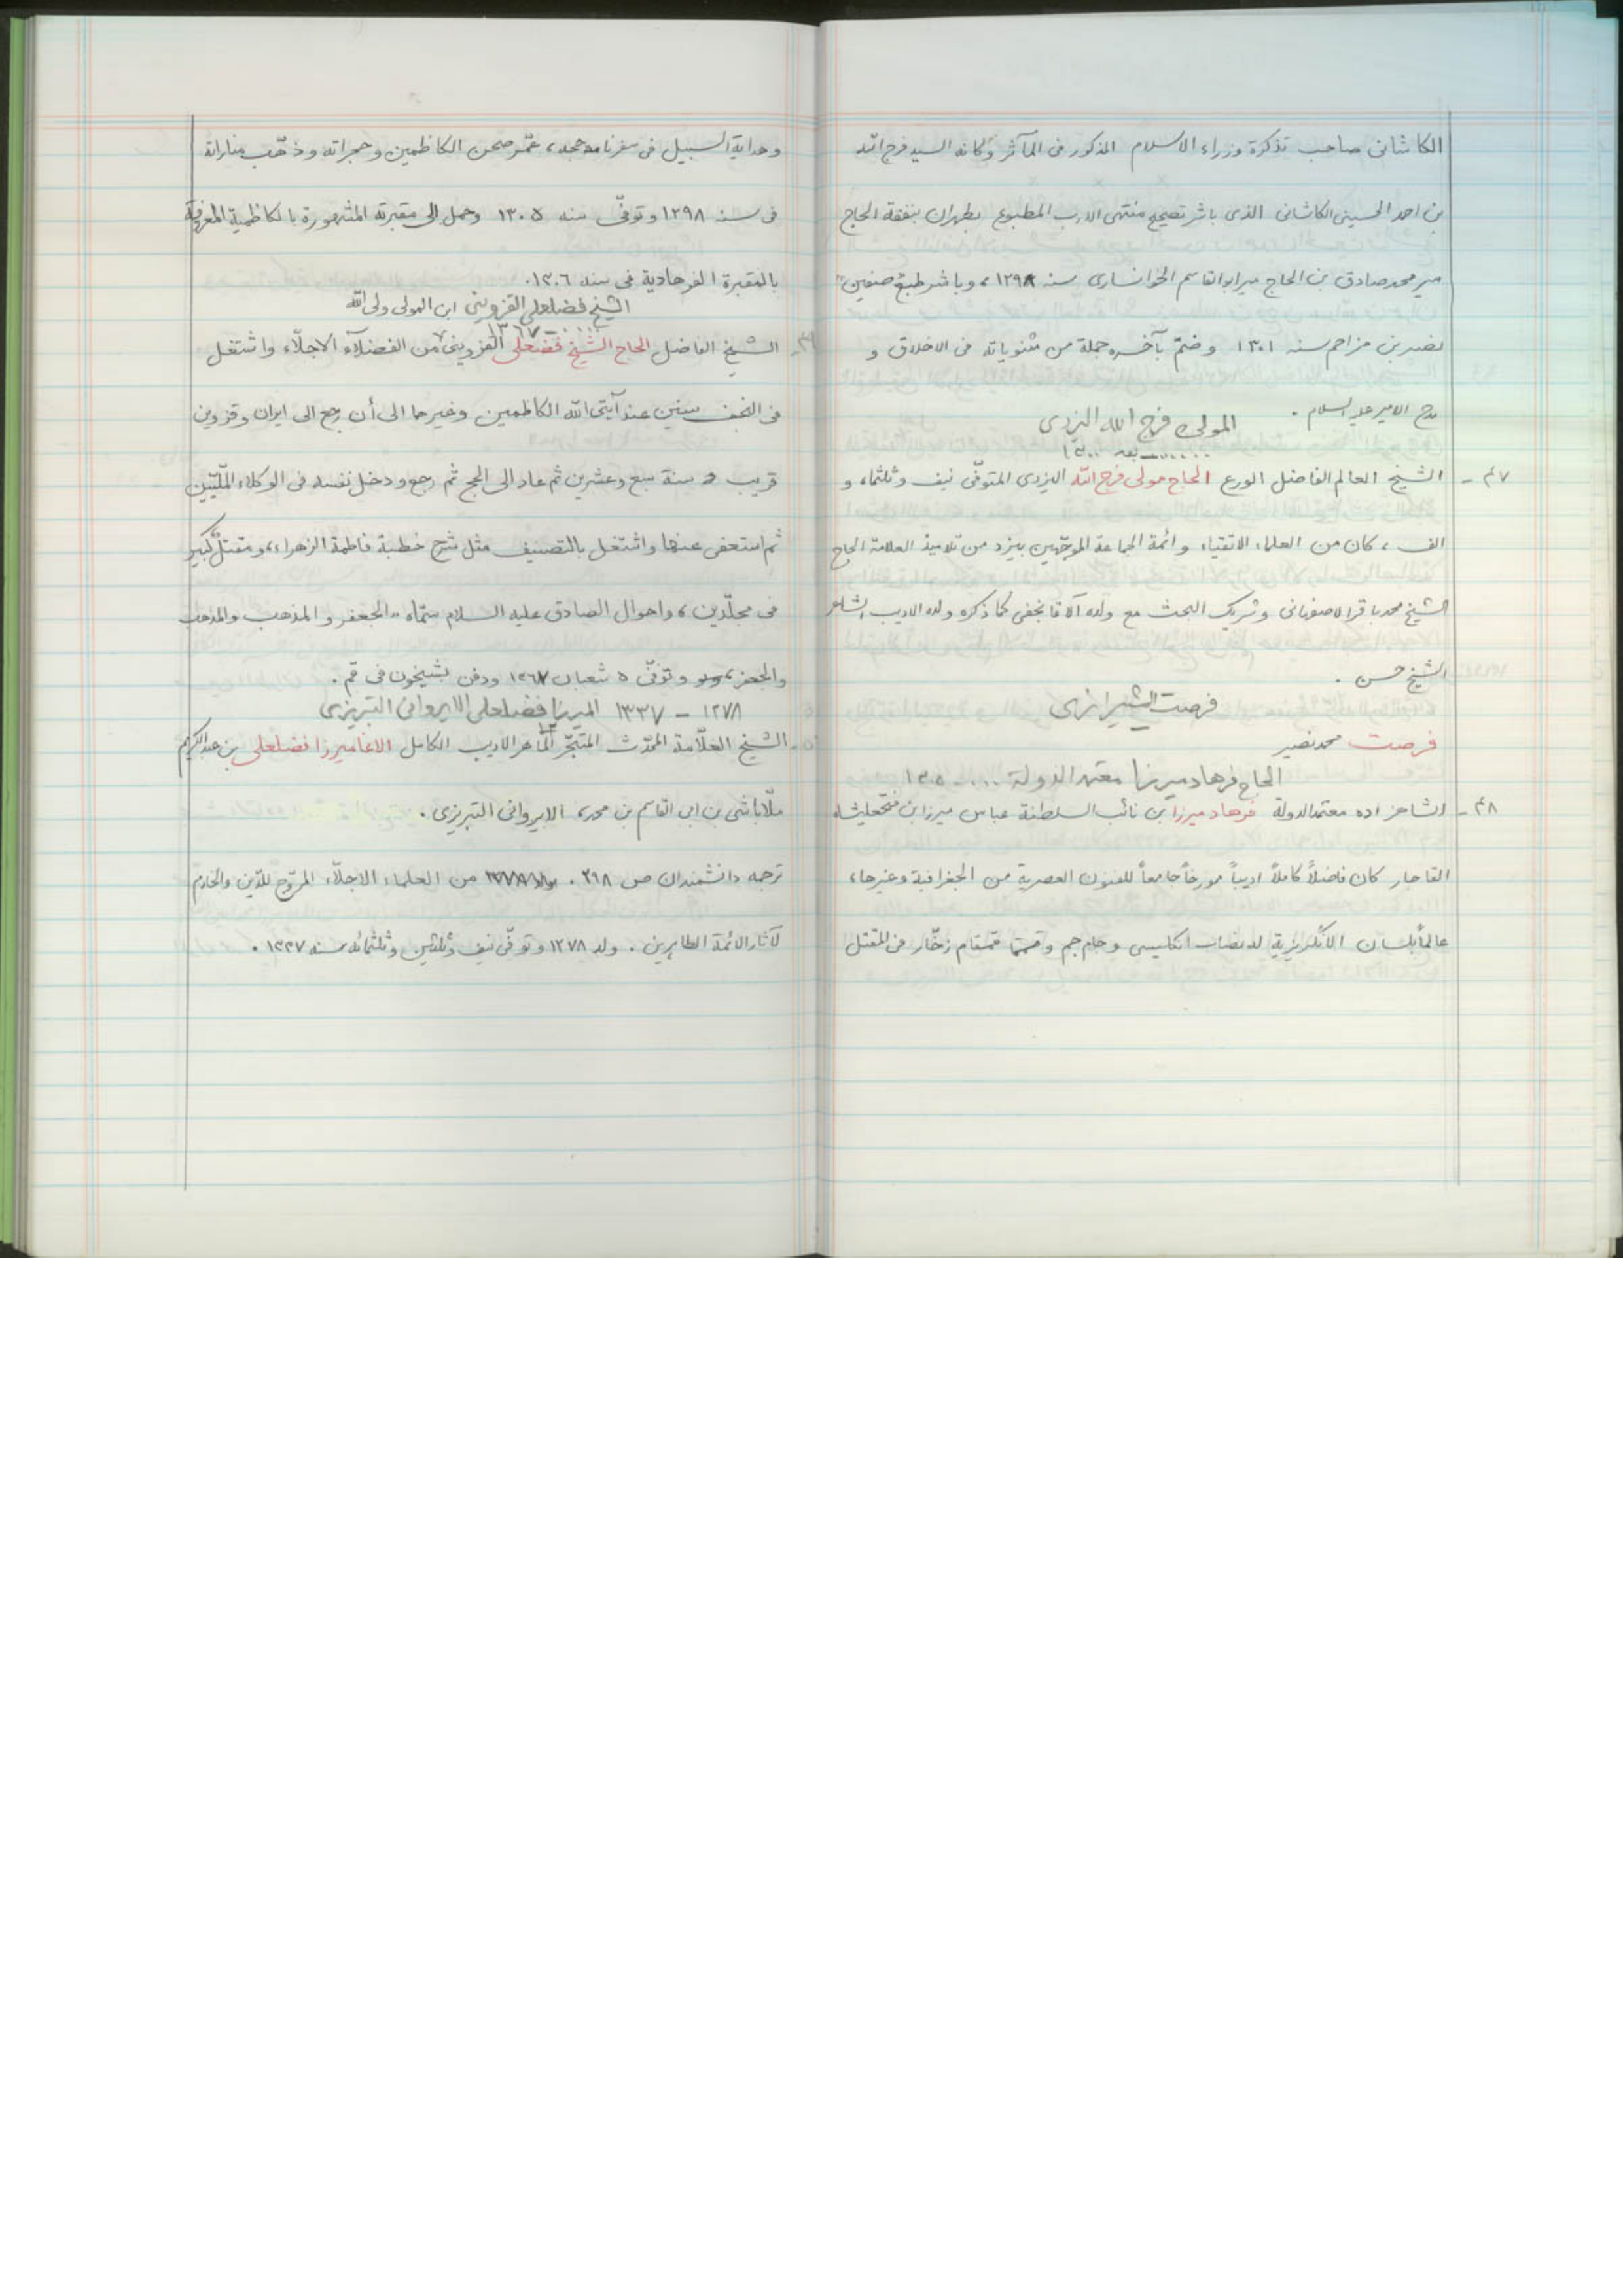 الكاشانى صاحب تذكرة وزراء الاسلام المذكور فى المآثر وكانه السيد فرج الله
بن احمد الحسينى الكاشانى الذى باشر تصحيح منتهى الارب المطبوع بطهران بنفقة الحاج
مير محمد صادق بن الحاج مير ابوالقاسم الخوانسارى سنه ١٢٩٨، وباشر طبع صفين
لنصر بن مزاحم سنه ١٣٠١ وضمّ بآخره جملة من مثنوياته فى الاخلاق و
مدح الامير عليه السلام .
المولى فرج الله اليزدى
...... - بعد ١٣٠٠
٤٧ - الشيخ العالم الفاضل الورع الحاج مولى فرج الله اليزدى المتوفّى نيف وثلثماء و
الف ، كان من العلماء الاتقياء وائمة الجماعة الموجّهين بيزد من تلاميذ العلامة الحاج
الشيخ محمد باقر الاصفهانى وشريك البحث مع ولده آلاقا نجفى كما ذكره ولده الاديب الشاعر
الشيخ حسن .
فرصت الشيرازى
فرصت محمد نصير
الحاج فرهاد ميرزا معتمد الدولة ... - ١٣٠٥
٤٨ - الشاهزاده معتمد الدولة فرهاد ميرزا بن نائب السلطنة عباس ميرزا بن فتحعليشاه
القاجار كان فاضلاً كاملاً اديباً مورخاً جامعاً للفنون العصرية من الجغرافية وغيرها ،
عالماً بلسان الانگريزية له نصاب انگليسى وجام جم و قمقام زخّار فى المقتل
وهداية السبيل فى سفرنامه حجه ، عمّر صحن الكاظمين وحجراته وذهّب مناراته
فى سنه ١٢٩٨ وتوفّى سنه ١٣٠٥ وحمل الى مقبرته المشهورة بالكاظمية المعروفة
بالمقبرة الفرهادية فى سنه ١٣٠٦.
الشيخ فضلعلى القزوينى ابن المولى ولى الله
.... - ١٣٦٧
٤٩ - الشيخ الفاضل الحاج الشيخ فضلعلى القزوينى من الفضلآء الاجلّاء واشتغل
فى النجف سنين عند آيتى الله الكاظمين وغيرهما الى أن رجع الى ايران وقزوين
قريب سنة سبع وعشرين ثم عاد الى الحج ثم رجع ودخل نفسه فى الوكلاء الملّتيّن
ثم استعفى عنها واشتغل بالتصنيف مثل شرح خطبة فاطمة الزهراء، ومقتل كبير
فى مجلّدين ، واحوال الصادق عليه السلام سمّاه "الجعفر و المذهب والمذهب
والجعفر ، وتوفّى ٥ شعبان ١٣٦٧ ودفن بشيخون فى قم .
١٢٧٨ - ١٣٣٧ الميرزا فضلعلى الايروانى التبريزى
٥٠ - الشيخ العلّامة المحدّث المتبحّر الماهر الاديب الكامل الاغا ميرزا فضلعلى بن عبدالكريم
ملّاباشى بن ابى القاسم بن محمد ، الايروانى التبريزى .
ترجمه دانشمندان ص ٢٩٨ . من العلماء الاجلّاء المروّج للدّين والخادم
لآثار الائمة الطاهرين . ولد ١٢٧٨ وتوفّى نيف وثلثين وثلثمائه سنه ١٣٣٧ .